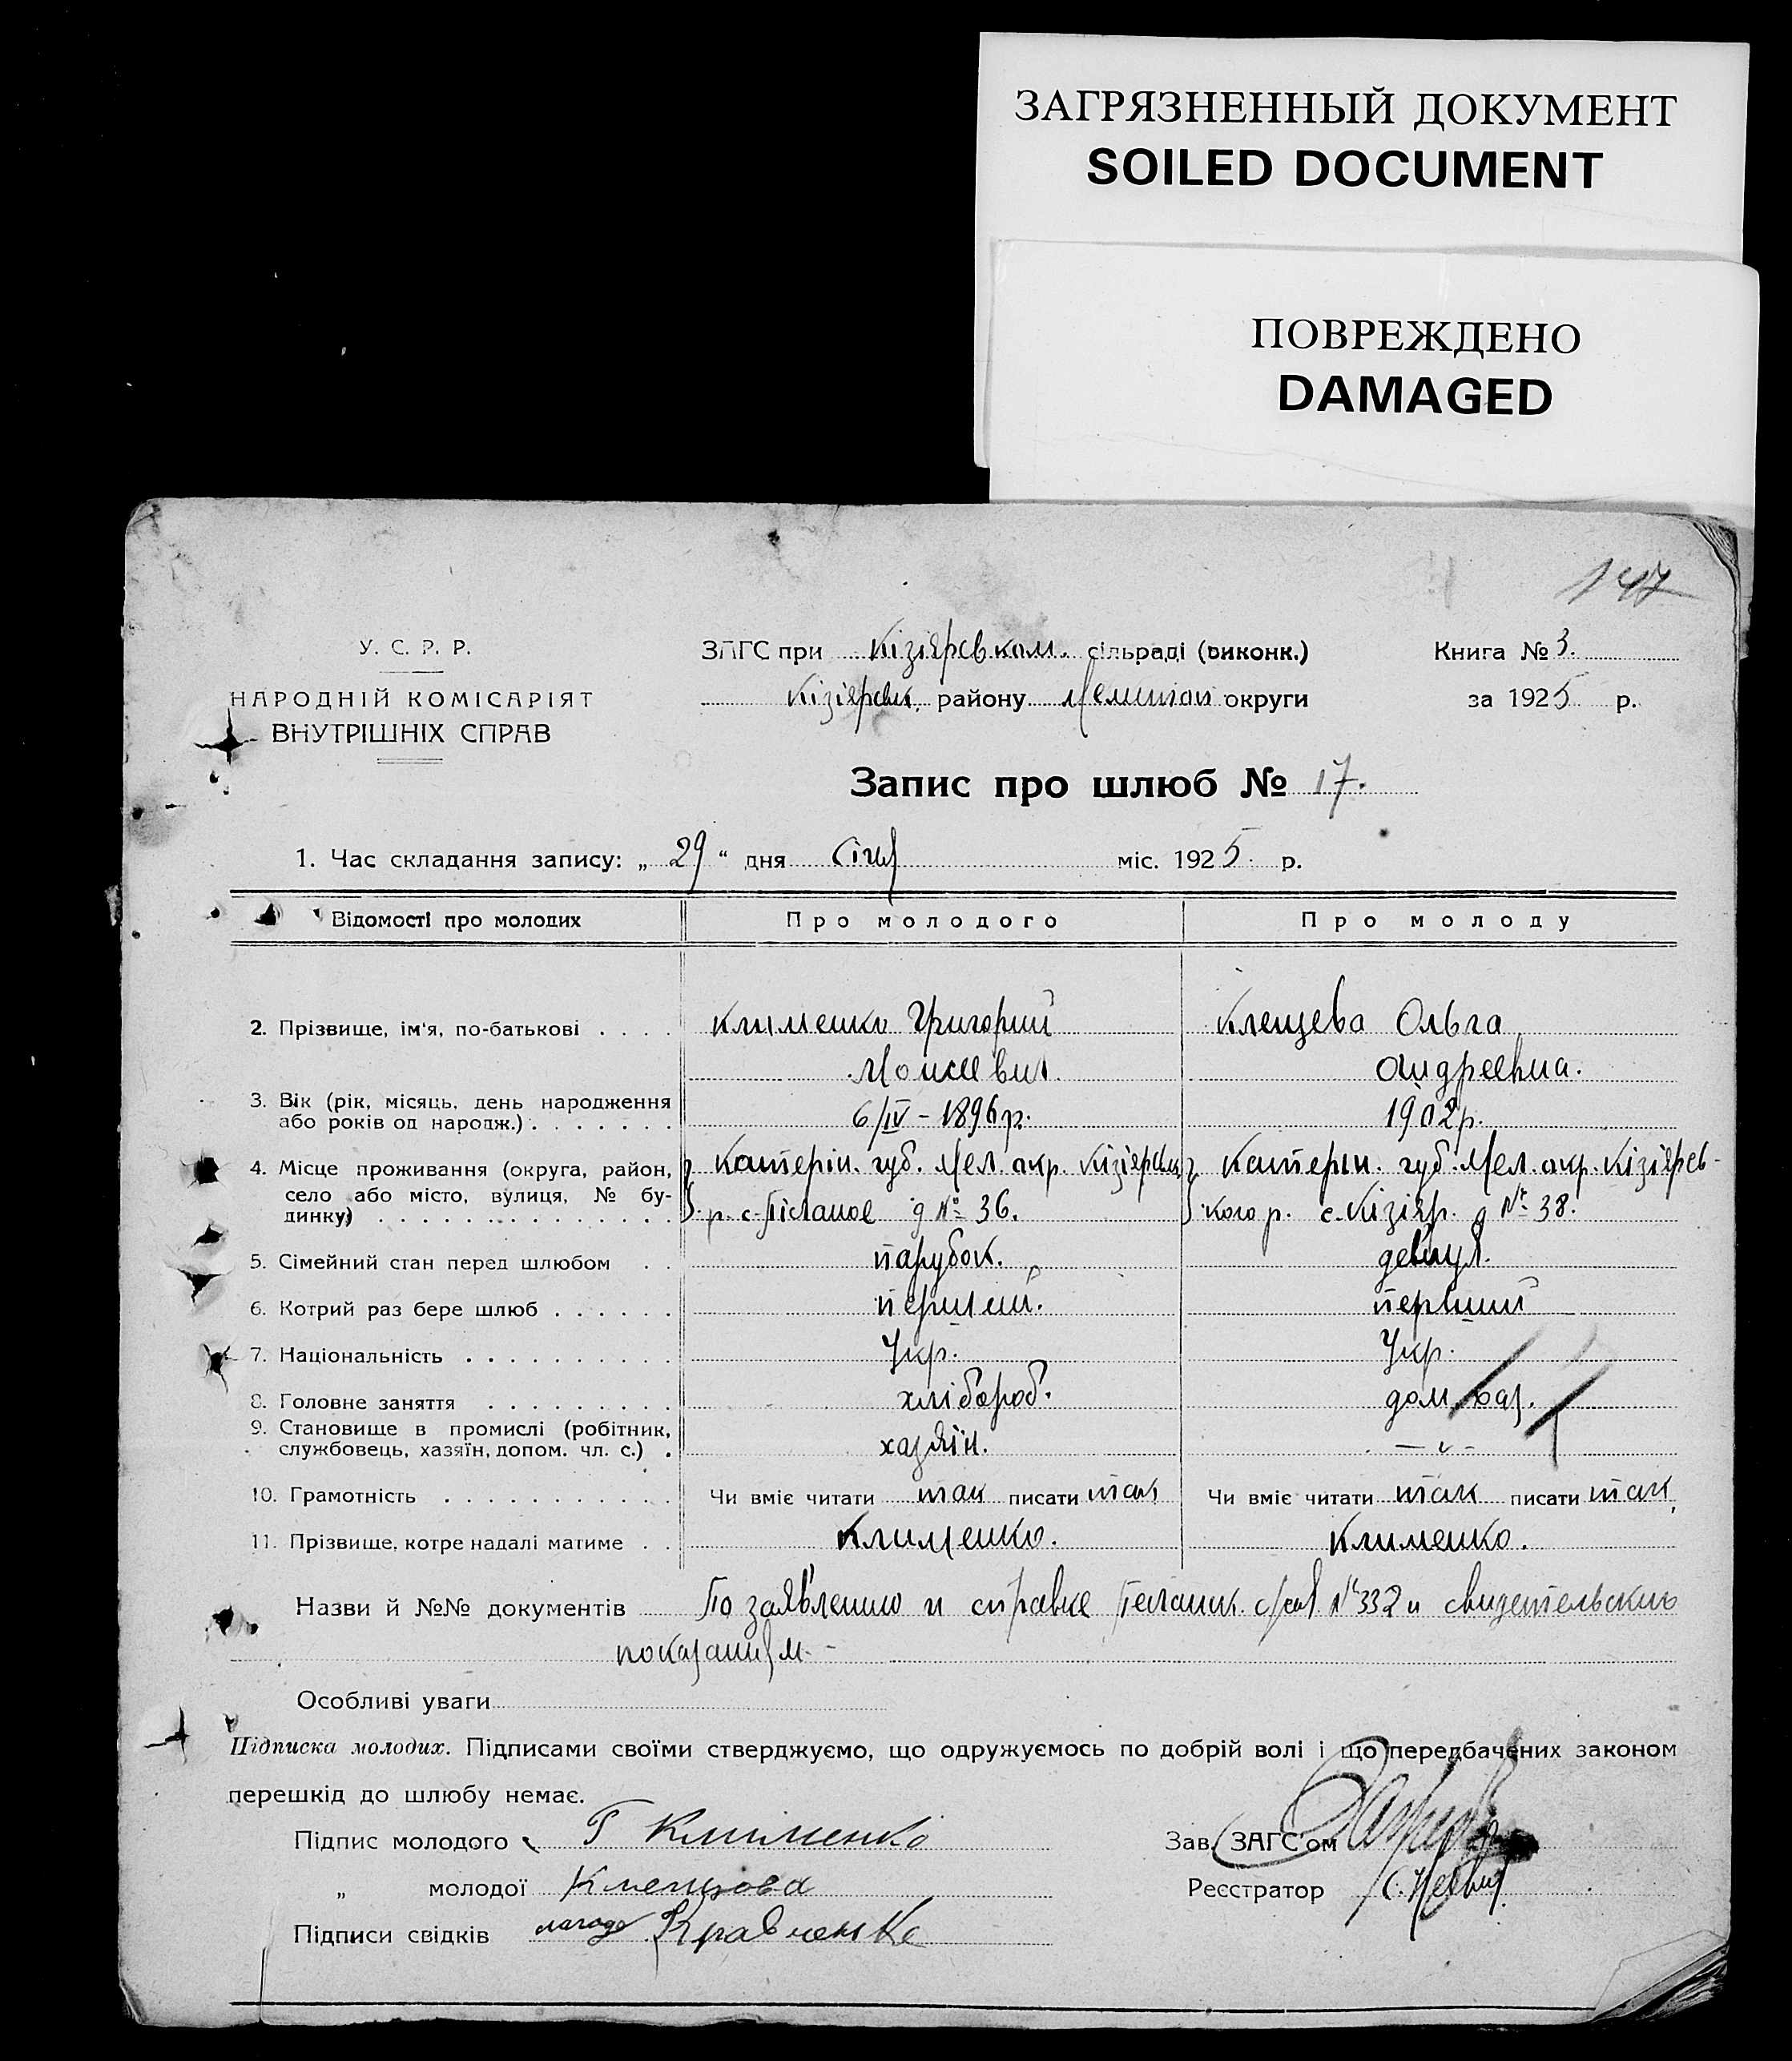 ЗАГРЯЗНЕННЫЙ ДОКУМЕНТ
SOILED DOCUMENT
ПОВРЕЖДЕНО
DAMAGED
147
У. С. Р. Р.
НАРОДНІЙ КОМІСАРІЯТ
ВНУТРІШНІХ СПРАВ
ЗАГС при Кізіярськом. сільраді (виконк.)
Кізіярськ. району Мелитоп округи
Книга № 3.
за 1925 р.
Запис про шлюб № 17.
1. Час складання запису: „ 29 “ дня січня міс. 1925. р.
Відомості про молодих Про молодого Про молоду
2. Прізвище, ім'я, по-батькові . . . . Клименко Григорий Клещева Ольга
Моисеевич Андреевна.
3. Вік (рік, місяць, день народження
або років од народж.) . . . . . . . 6/IV - 1896 р. 1902 р.
4. Місце проживання (округа, район, Катерін. губ. Мел. окр. Кізіярськ Катерин. губ. Мел. окр. Кізіярсь-
село або місто, вулиця, № бу- р. с. Піщаное д № 36. кого р. с. Кізіяр. д № 38.
динку) . . . . . . . . . . . . . . .
5. Сімейний стан перед шлюбом . . парубок. девиця.
6. Котрий раз бере шлюб . . . . . . перший. перший
7. Національність . . . . . . . . . . Укр. Укр.
8. Головне заняття . . . . . . . . . хлібороб. дом. хаз.
9. Становище в промислі (робітник,
службовець, хазяїн, допом. чл. с.) . хазяїн. — „ -
10. Грамотність . . . . . . . . . . . Чи вміє читати так писати так Чи вміє читати так писати так
11. Прізвище, котре надалі матиме . . Клименко. Клименко.
Назви й №№ документів По заявлению и справке Песчанск. с/сов № 332 и свидетельским
показаниям. -
Особливі уваги
Підписка молодих. Підписами своїми стверджуємо, що одружуємось по добрій волі і що передбачених законом
перешкід до шлюбу немає.
Підпис молодого Г Клименко Зав. ЗАГС'ом
„ молодої Клещова Реєстратор
Підписи свідків Кравченко